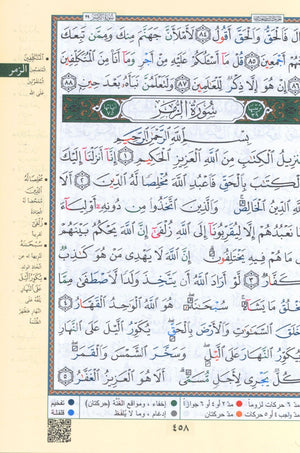 قَالَ فَالْحَقُّ وَالْحَقَّ أَقُولُ ٨٤ لَأَمْلَأَنَّ جَهَنَّمَ مِنكَ وَمِمَّن تَبِعَكَ
مِنْهُمْ أَجْمَعِينَ ٨٥ قُلْ مَا أَسْـَٔلُكُمْ عَلَيْهِ مِنْ أَجْرٍ وَمَا أَنَا مِنَ الْمُتَكَلِّفِينَ
٨٦ إِنْ هُوَ إِلَّا ذِكْرٌ لِّلْعَالَمِينَ ٨٧ وَلَتَعْلَمُنَّ نَبَأَهُ بَعْدَ حِينٍ ٨٨
سُورَةُ الزُّمَرِ
بِسْمِ اللَّهِ الرَّحْمَٰنِ الرَّحِيمِ
تَنزِيلُ الْكِتَٰبِ مِنَ اللَّهِ الْعَزِيزِ الْحَكِيمِ ١ إِنَّا أَنزَلْنَا إِلَيْكَ
الْكِتَٰبَ بِالْحَقِّ فَاعْبُدِ اللَّهَ مُخْلِصًا لَّهُ الدِّينَ ٢ أَلَا
لِلَّهِ الدِّينُ الْخَالِصُ وَالَّذِينَ اتَّخَذُوا مِن دُونِهِ أَوْلِيَاءَ
مَا نَعْبُدُهُمْ إِلَّا لِيُقَرِّبُونَا إِلَى اللَّهِ زُلْفَىٰ إِنَّ اللَّهَ يَحْكُمُ بَيْنَهُمْ
فِي مَا هُمْ فِيهِ يَخْتَلِفُونَ إِنَّ اللَّهَ لَا يَهْدِي مَنْ هُوَ كَٰذِبٌ
كَفَّارٌ ٣ لَّوْ أَرَادَ اللَّهُ أَن يَتَّخِذَ وَلَدًا لَّاصْطَفَىٰ مِمَّا
يَخْلُقُ مَا يَشَاءُ سُبْحَٰنَهُ هُوَ اللَّهُ الْوَٰحِدُ الْقَهَّارُ ٤
خَلَقَ السَّمَٰوَٰتِ وَالْأَرْضَ بِالْحَقِّ يُكَوِّرُ الَّيْلَ عَلَى النَّهَارِ
وَيُكَوِّرُ النَّهَارَ عَلَى الَّيْلِ وَسَخَّرَ الشَّمْسَ وَالْقَمَرَ
كُلٌّ يَجْرِي لِأَجَلٍ مُّسَمًّى أَلَا هُوَ الْعَزِيزُ الْغَفَّٰرُ ٥
الزمر
المتكلفين
مخلصا له الدين
زلفى
سبحانه
يكور الليل على النهار
مدّ ٦ حركات لزوماً مدّ ٢ أو ٤ أو ٦ جوازاً إخفاء، ومواقع الغُنَّة (حركتان) تفخيم
مدّ واجب ٤ أو ٥ حركات مدّ حركتان إدغام، وما لا يُلفَظ قلقلة
٤٥٨